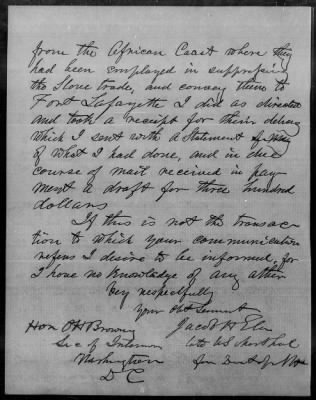 from the African Coast where they
had been employed in suppressing
the Slave trade, and convey them to
Fort Lafayette I did as directed
and took a receipt for their delivery
which I sent with a Statement
of what I had done, and in due
course of mail received in pay-
ment a draft for three hundred
dollars
If this is not the transac-
tion to which your communication
refers I desire to be informed, for
I have no knowledge of any other
Very respectfully
Your Obt Servant
Jacob H Ela
Hon O H Browning
late US Marshal
Sec of Interior
for Dist of N H
Washington
D C